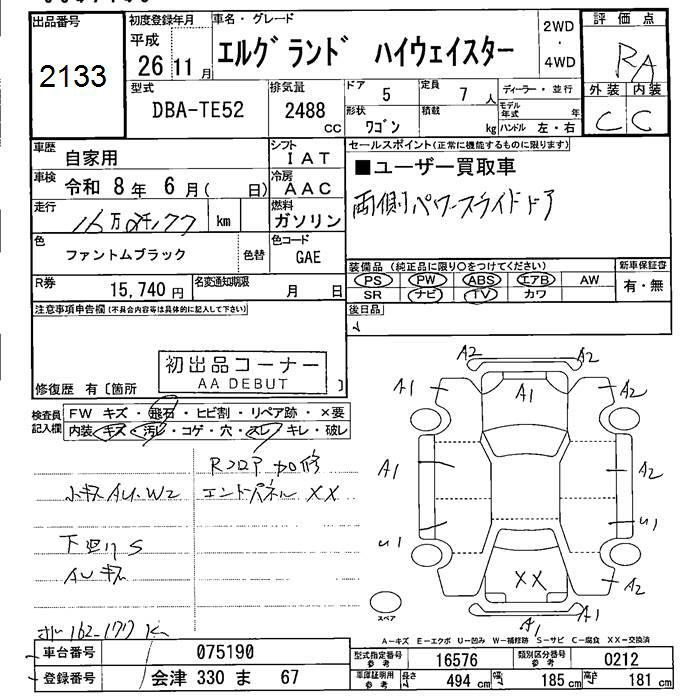 出品番号
2133
初度登録年月
平成
26 11 月
車名・グレード
エルグランド ハイウェイスター
2WD
・
4WD
評価点
RA
外装 内装
C C
型式
DBA-TE52
排気量
2488 cc
ドア
5
定員
7 人
形状
ワゴン
積載
kg
ディーラー・並行
モデル年式 年
ハンドル 左・右
車歴
自家用
シフト
IAT
車検
令和 8年 6月( 日)
冷房
AAC
走行
km
燃料
ガソリン
色
ファントムブラック
色替
色コード
GAE
セールスポイント(正常に機能するものに限ります)
■ユーザー買取車
両側パワースライドドア
R券
15,740 円
名変通知期限
月 日
装備品(純正品に限り○をつけてください)
PS PW ABS エアB AW
SR ナビ TV カワ
新車保証書
有・無
注意事項申告欄(不具合内容等は具体的に記入して下さい)
後日品
初出品コーナー
AA DEBUT
修復歴 有〔箇所 〕
検査員記入欄
FW キズ・飛石・ヒビ割・リペア跡・×要
内装 キズ・汚レ・コゲ・穴・スレ・キレ・破レ
Rフロア 加修
小キズAU.W2 エンドパネル XX
下廻りS
AUキズ
A2 A2
A1 A1 A2
A1 A2
U1 U1
XX A2
A1 A1
スペア
A-キズ E-エクボ U-凹み W-補修跡 S-サビ C-腐食 XX-交換済
車台番号
075190
型式指定番号
参考
16576
類別区分番号
参考
0212
登録番号
会津 330 ま 67
車庫証明用
参考
長さ 494 cm 幅 185 cm 高さ 181 cm